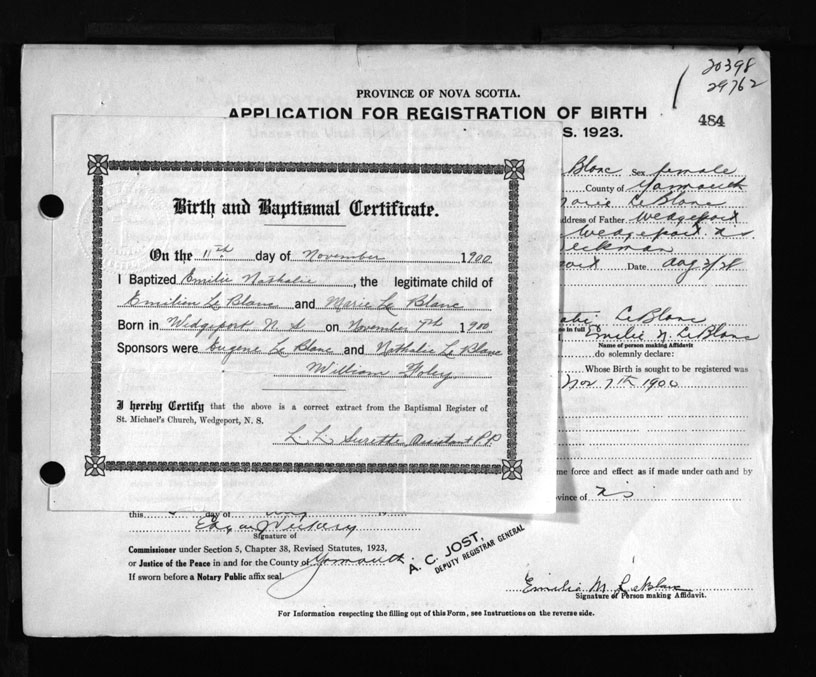 20398
29762
PROVINCE OF NOVA SCOTIA.
APPLICATION FOR REGISTRATION OF BIRTH
S. 1923.
484
Birth and Baptismal Certificate.
On the 11th day of November 1900
I Baptized Emilie Nathalie, the legitimate child of
Emilien Le Blanc and Marie Le Blanc
Born in Wedgeport N S on November 7th 1900
Sponsors were Eugene Le Blanc and Nathalie Le Blanc
William Foley
I hereby Certify that the above is a correct extract from the Baptismal Register of
St. Michael's Church, Wedgeport, N. S.
L L Surette Assistant P.P.
Blanc Sex female
County of Yarmouth
Marie LeBlanc
ddress of Father Wedgeport
Wedgeport. N.S.
Date Aug 3/28
LeBlanc
e in full Emilie N LeBlanc
Name of person making Affidavit
do solemnly declare:
Whose Birth is sought to be registered was
Nov 7th 1900
me force and effect as if made under oath and by
ovince of N S
this day of 19
Signature of
Commissioner under Section 5, Chapter 38, Revised Statutes, 1923,
or Justice of the Peace in and for the County of Yarmouth
If sworn before a Notary Public affix seal.
A. C. JOST,
DEPUTY REGISTRAR GENERAL
Emilie M LeBlanc
Signature of Person making Affidavit.
For Information respecting the filling out of this Form, see Instructions on the reverse side.